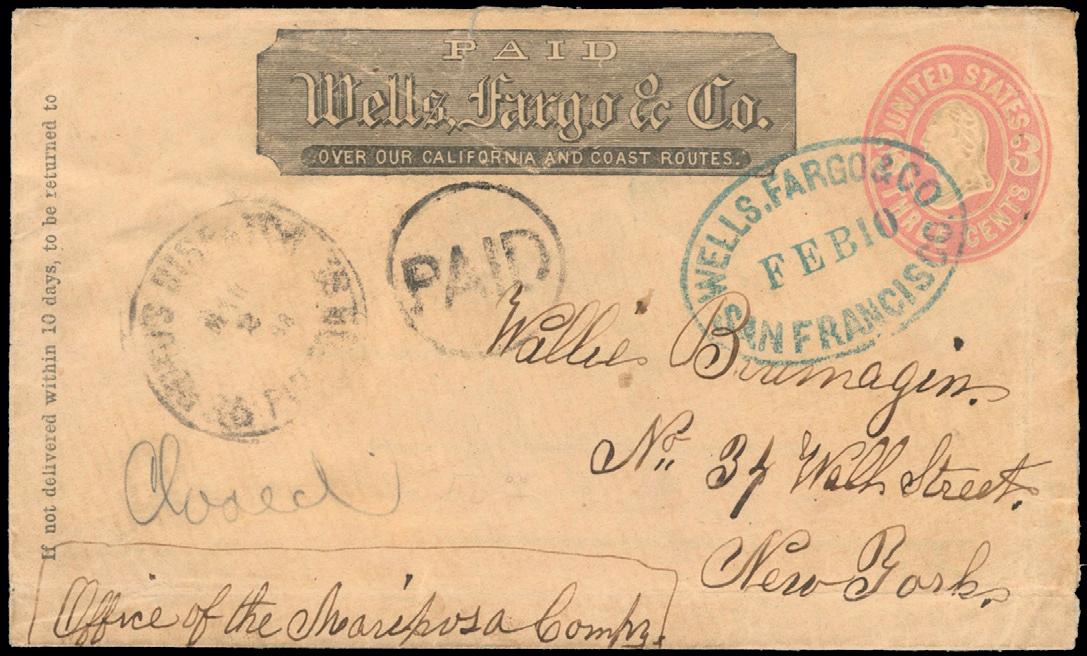 PAID
Wells, Fargo & Co.
OVER OUR CALIFORNIA AND COAST ROUTES.
UNITED STATES
3 THREE CENTS 3
WELLS, FARGO & CO.
FEB 10
SAN FRANCISCO
PAID
If not delivered within 10 days, to be returned to
MAR
PD
Wallie Brumagin.
No. 34 Wall Street.
New York.
Closed
Office of the Mariposa Compy.